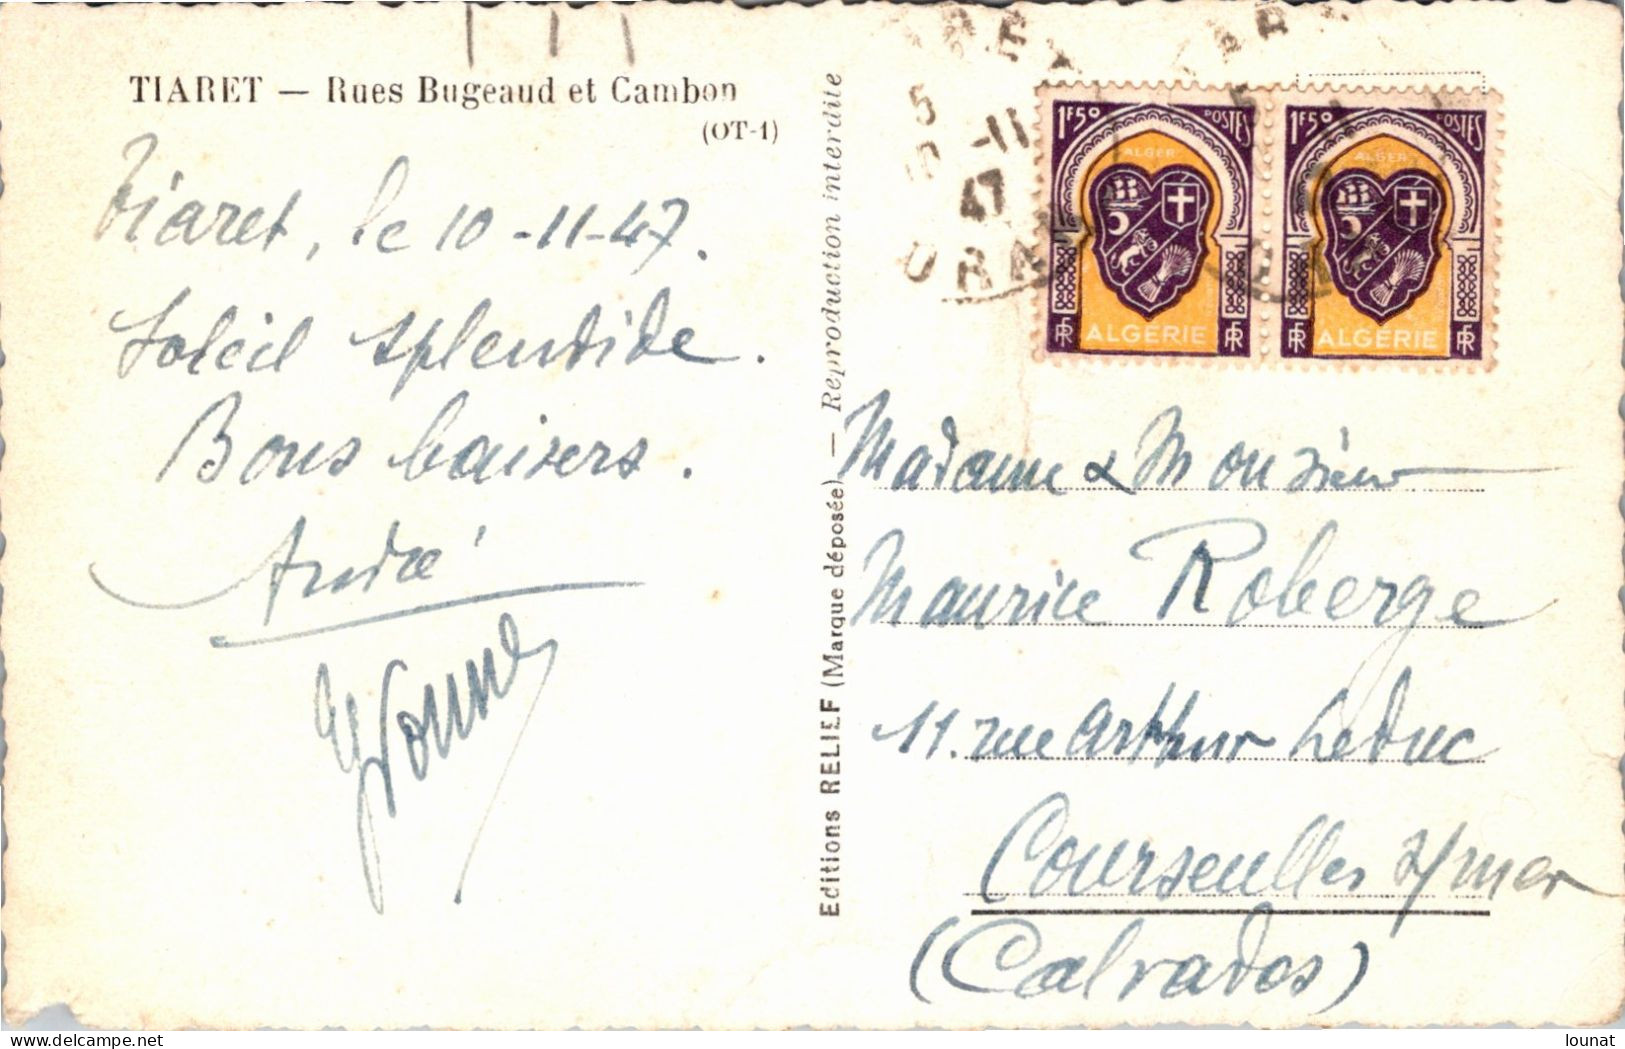 TIARET — Rues Bugeaud et Cambon
(OT-1)
Tiaret, le 10-11-47.
Soleil splendide.
Bons baisers.
André
Yvonne
Editions RELIEF (Marque déposée) — Reproduction interdite
5
10 -11
47
ORAN
1F50 POSTES
ALGER
RF ALGERIE RF
1F50 POSTES
ALGER
RF ALGERIE RF
Madame & Monsieur
Maurice Roberge
11. rue Arthur Leduc
Courseulles s/mer
(Calvados)
www.delcampe.net
lounat